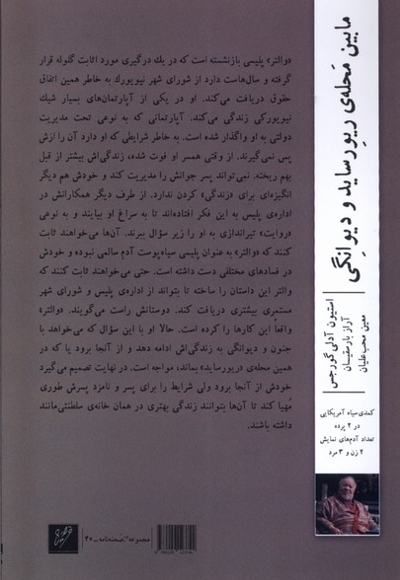 «والتر» پلیسی بازنشسته است که در یک درگیری مورد اثابت گلوله قرار
گرفته و سال‌هاست دارد از شورای شهر نیویورک به خاطر همین اتفاق
حقوق دریافت می‌کند. او در یکی از آپارتمان‌های بسیار شیک
نیویورکی زندگی می‌کند. آپارتمانی که به نوعی تحت مدیریت
دولتی به او واگذار شده است. به خاطر شرایطی که او دارد آن را ازش
پس نمی‌گیرند. از وقتی همسر او فوت شده، زندگی‌اش بیشتر از قبل
بهم ریخته. نمی‌تواند پسر جوانش را مدیریت کند و خودش هم دیگر
انگیزه‌ای برای «زندگی» کردن ندارد. از طرف دیگر همکارانش در
اداره‌ی پلیس به این فکر افتاده‌اند تا به سراغ او بیایند و به نوعی
«روایت» تیراندازی به او را زیر سؤال ببرند. آن‌ها می‌خواهند ثابت
کنند که «والتر» به عنوان پلیسی سیاه‌پوست آدم سالمی نبوده و خودش
در فسادهای مختلفی دست داشته است. حتی می‌خواهند ثابت کنند که
والتر این داستان را ساخته تا بتواند از اداره‌ی پلیس و شورای شهر
مستمری بیشتری دریافت کند. دوستانش راست می‌گویند. «والتر»
واقعاً این کارها را کرده است. حالا او با این سؤال که می‌خواهد با
جنون و دیوانگی به زندگی‌اش ادامه دهد و از آنجا برود یا که در
همین محله‌ی «ریورساید» بماند، مواجه است. در نهایت تصمیم می‌گیرد
خودش از آنجا برود ولی شرایط را برای پسر و نامزد پسرش طوری
مُهیا کند تا آن‌ها بتوانند زندگی بهتری در همان خانه‌ی سلطنتی‌مانند
داشته باشند.
مابین مَحله‌ی ریورساید و دیوانِگی
استیون آدلی گورجس
آراز بارسقیان
معین محب‌علیان
کمدی سیاه آمریکایی
در ۲ پرده
تعداد آدم‌های نمایش
۲ زن و ۳ مرد